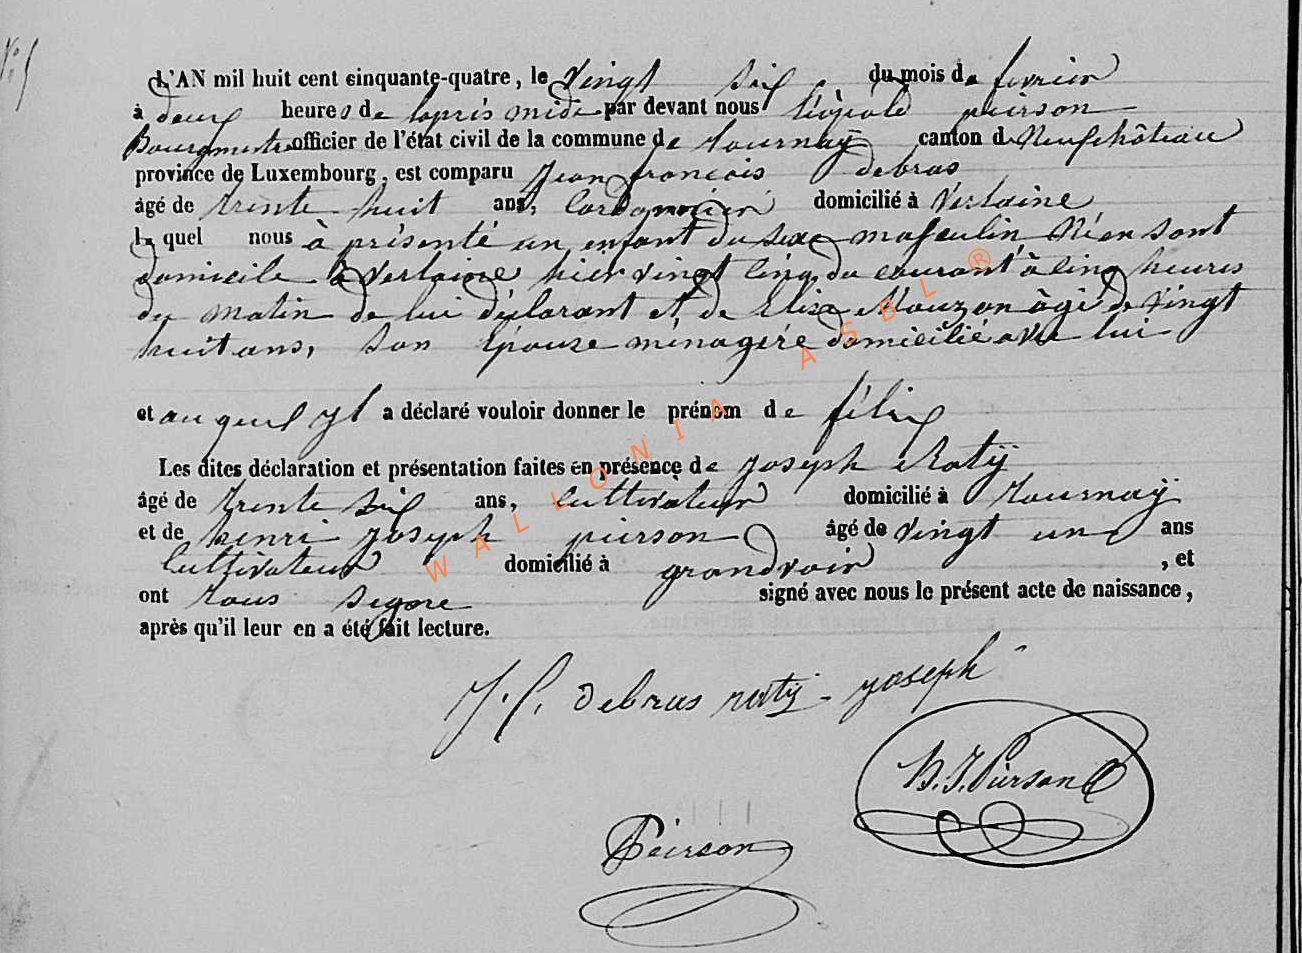 N° 5
L'AN mil huit cent cinquante-quatre, le vingt six du mois de fevrier
à deux heures de lapris midi par devant nous Léopold peirson
Bourgmestre officier de l'état civil de la commune de tournay canton de Neufchâteau
province de Luxembourg, est comparu Jean francois debras
âgé de trente huit ans, Cordonnier domicilié à Verlaine
le quel nous à présenté un enfant du sexe masculin Né en sont
domicile à Verlaine hier vingt Cinq du courant à Cinq heures
du matin de lui déclarant et de Elise Mouzon âgé de vingt
huit ans, Son Epouse ménagéré domicilié avec lui
et auquel yl a déclaré vouloir donner le prénom de félix
Les dites déclaration et présentation faites en présence de Joseph Naty
âgé de trente six ans, Cultivateur domicilié à tournay
et de henri Joseph peirson âgé de vingt un ans
Cultivateur domicilié à grandvoir , et
ont tous signé avec nous le présent acte de naissance,
après qu'il leur en a été fait lecture.
J. f. debras naty joseph
H. J. Peirson
Peirson
WALLONIA ASBL ®